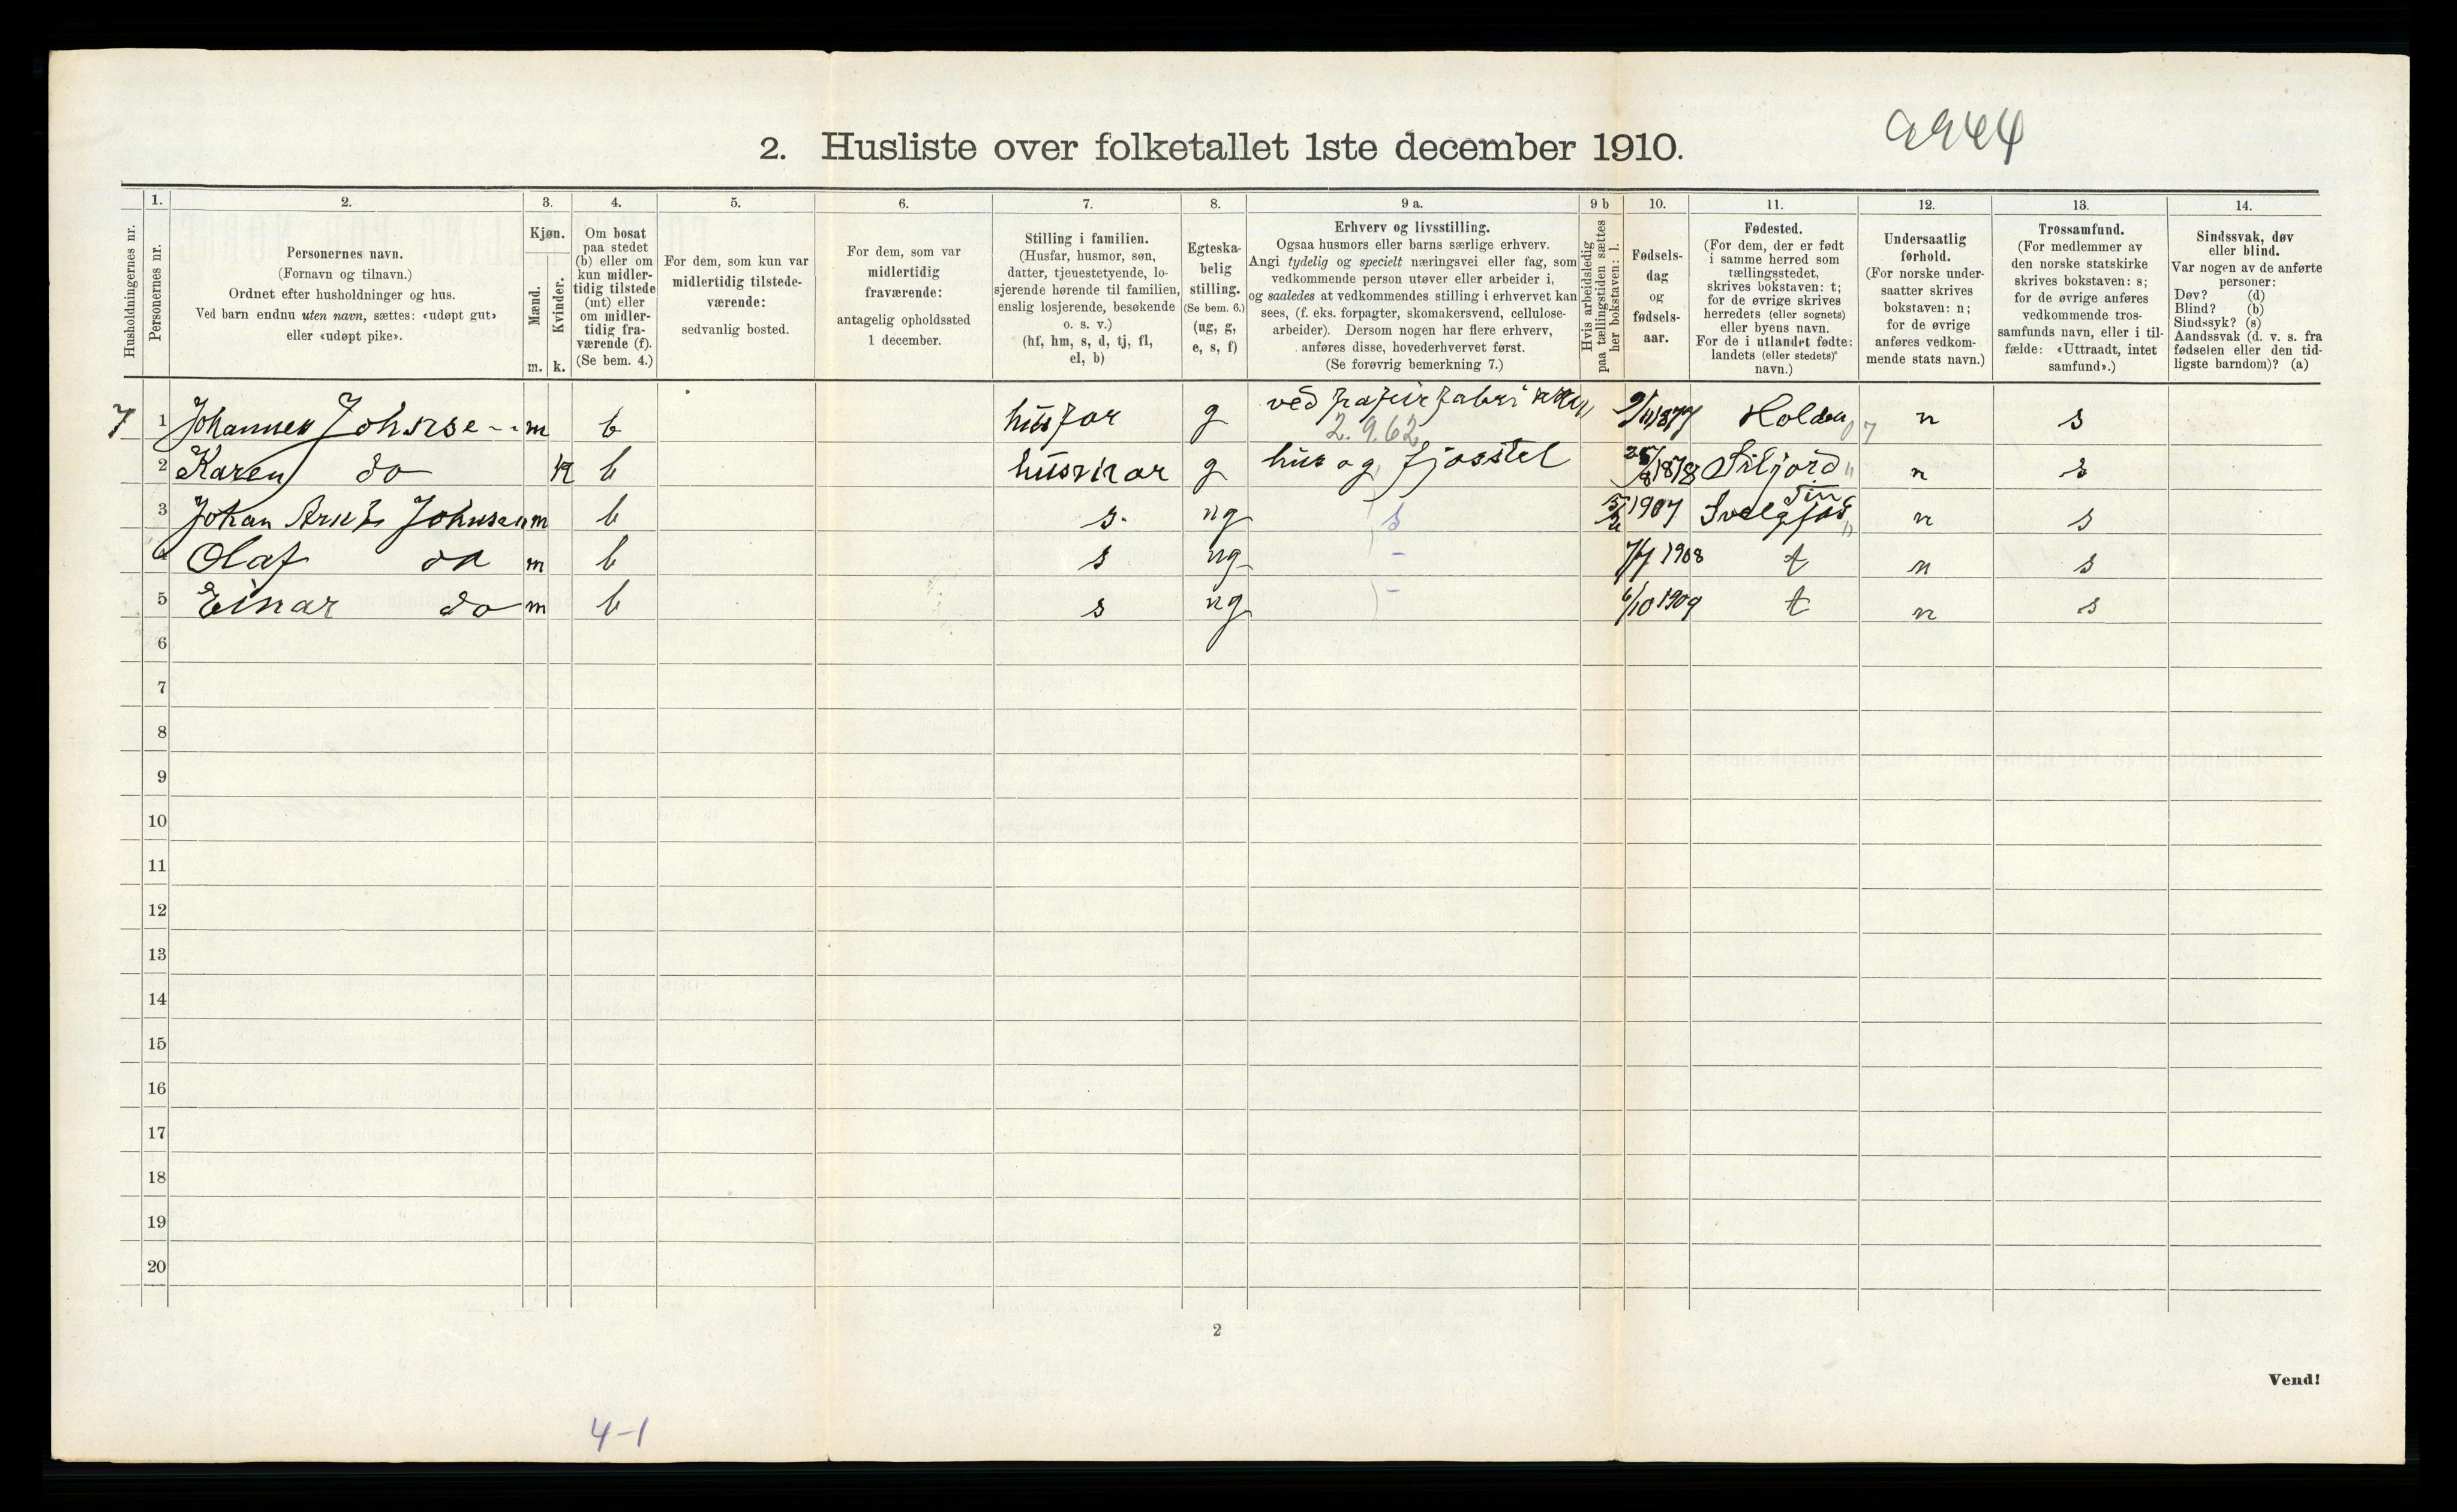 9944
2. Husliste over folketallet 1ste december 1910.
Husholdningernes nr.
1.
Personernes nr.
2.
Personernes navn.
(Fornavn og tilnavn.)
Ordnet efter husholdninger og hus.
Ved barn endnu uten navn, sættes: «udøpt gut»
eller «udøpt pike».
3.
Kjøn.
Mænd.
Kvinder.
m. k.
4.
Om bosat
paa stedet
(b) eller om
kun midler-
tidig tilstede
(mt) eller
om midler-
tidig fra-
værende (f).
(Se bem. 4.)
5.
For dem, som kun var
midlertidig tilstede-
værende:
sedvanlig bosted.
6.
For dem, som var
midlertidig
fraværende:
antagelig opholdssted
1 december.
7.
Stilling i familien.
(Husfar, husmor, søn,
datter, tjenestetyende, lo-
sjerende hørende til familien,
enslig losjerende, besøkende
o. s. v.)
(hf, hm, s, d, tj, fl,
el, b)
8.
Egteska-
belig
stilling.
(Se bem. 6.)
(ug, g,
e, s, f)
9 a.
Erhverv og livsstilling.
Ogsaa husmors eller barns særlige erhverv.
Angi tydelig og specielt næringsvei eller fag, som
vedkommende person utøver eller arbeider i,
og saaledes at vedkommendes stilling i erhvervet kan
sees, (f. eks. forpagter, skomakersvend, cellulose-
arbeider). Dersom nogen har flere erhverv,
anføres disse, hovederhvervet først.
(Se forøvrig bemerkning 7.)
9 b
Hvis arbeidsledig
paa tællingstiden sættes
her bokstaven: l.
10.
Fødsels-
dag
og
fødsels-
aar.
11.
Fødested.
(For dem, der er født
i samme herred som
tællingsstedet,
skrives bokstaven: t;
for de øvrige skrives
herredets (eller sognets)
eller byens navn.
For de i utlandet fødte:
landets (eller stedets)
navn.)
12.
Undersaatlig
forhold.
(For norske under-
saatter skrives
bokstaven: n;
for de øvrige
anføres vedkom-
mende stats navn.)
13.
Trossamfund.
(For medlemmer av
den norske statskirke
skrives bokstaven: s;
for de øvrige anføres
vedkommende tros-
samfunds navn, eller i til-
fælde: «Uttraadt, intet
samfund».)
14.
Sindssvak, døv
eller blind.
Var nogen av de anførte
personer:
Døv? (d)
Blind? (b)
Sindssyk? (s)
Aandssvak (d. v. s. fra
fødselen eller den tid-
ligste barndom)? (a)
7 1 Johannes Johnse-- m b husfar g ved papirfabrikken 2.9.62 9/11 1877 Holden 07 n s
2 Karen do k b husmor g hus og fjosstel 25/8 1878 Siljord " n s
3 Johan Arnt Johnsen m b s. ug s 1907 Svelgfos Tin " n s
4 Olaf do m b s ug - 7/7 1908 t n s
5 Einar do m b s ug - 6/10 1909 t n s
6
7
8
9
10
11
12
13
14
15
16
17
18
19
20
2
Vend!
4-1